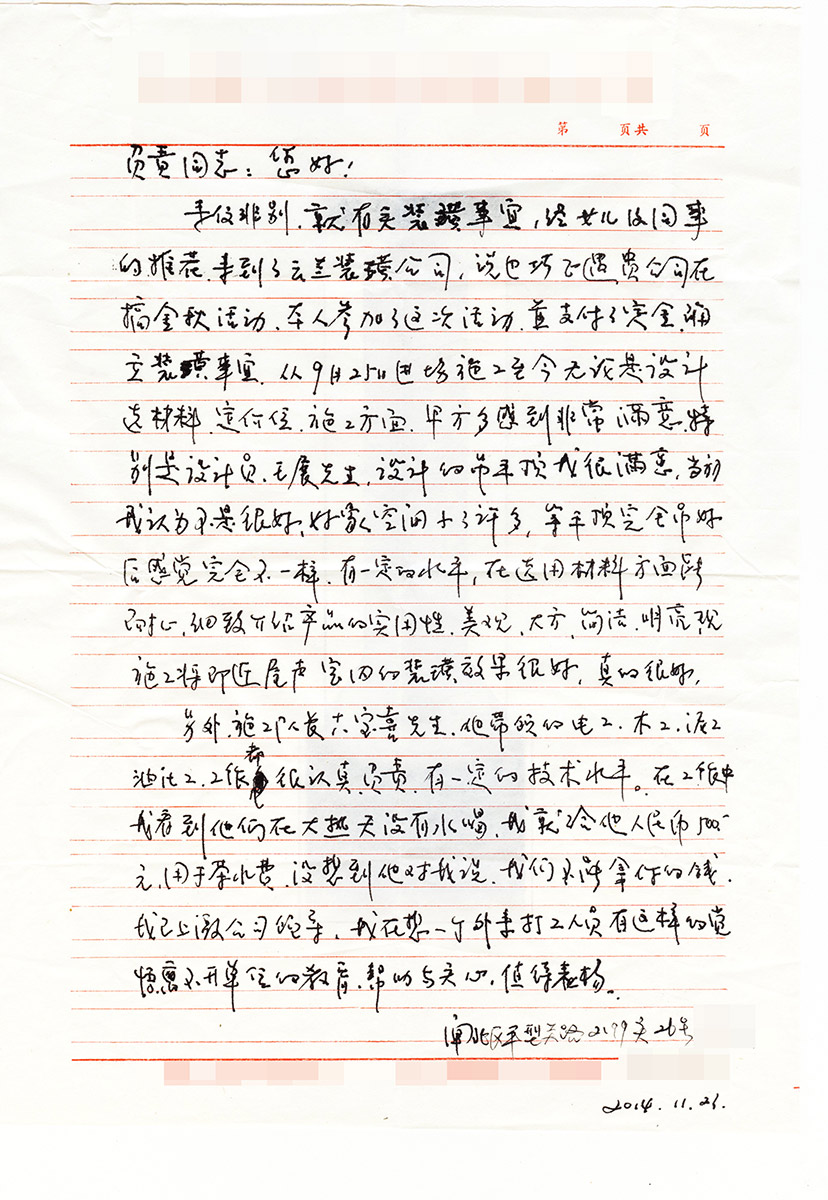 第 页共 页
负责同志：您好！
事仅非别，就有关装璜事宜，经女儿及同事
的推荐，来到了云兰装璜公司，说也巧正遇贵公司在
搞金秋活动，本人参加了这次活动，并支付了定金，确
立装璜事宜，从9月25日进场施工至今无论是设计
选材料，定价位，施工方面，甲方多感到非常满意，特
别是设计员，王展先生，设计的吊平顶我很满意，当初
我认为不是很好，好像空间小了许多，等平顶完全吊好
后感觉完全不一样，有一定的水平，在选用材料方面能
耐心，细致介绍产品的实用性，美观，大方，简洁，明亮，现
施工将即近尾声室内的装璜效果很好，真的很好，
另外，施工队长 宝喜先生，他带领的电工、木工、泥工
油漆工，工作都很认真负责，有一定的技术水平。在工作中
我看到他们在大热天没有水喝，我就给他人民币500.-
元，用于茶水费，没想到他对我说，我们不能拿你的钱，
我已上缴公司领导，我在想一个外来打工人员有这样的觉
悟离不开单位的教育，帮助与关心，值得表扬。
闸北区平型关路2199弄26号
2014.11.23.